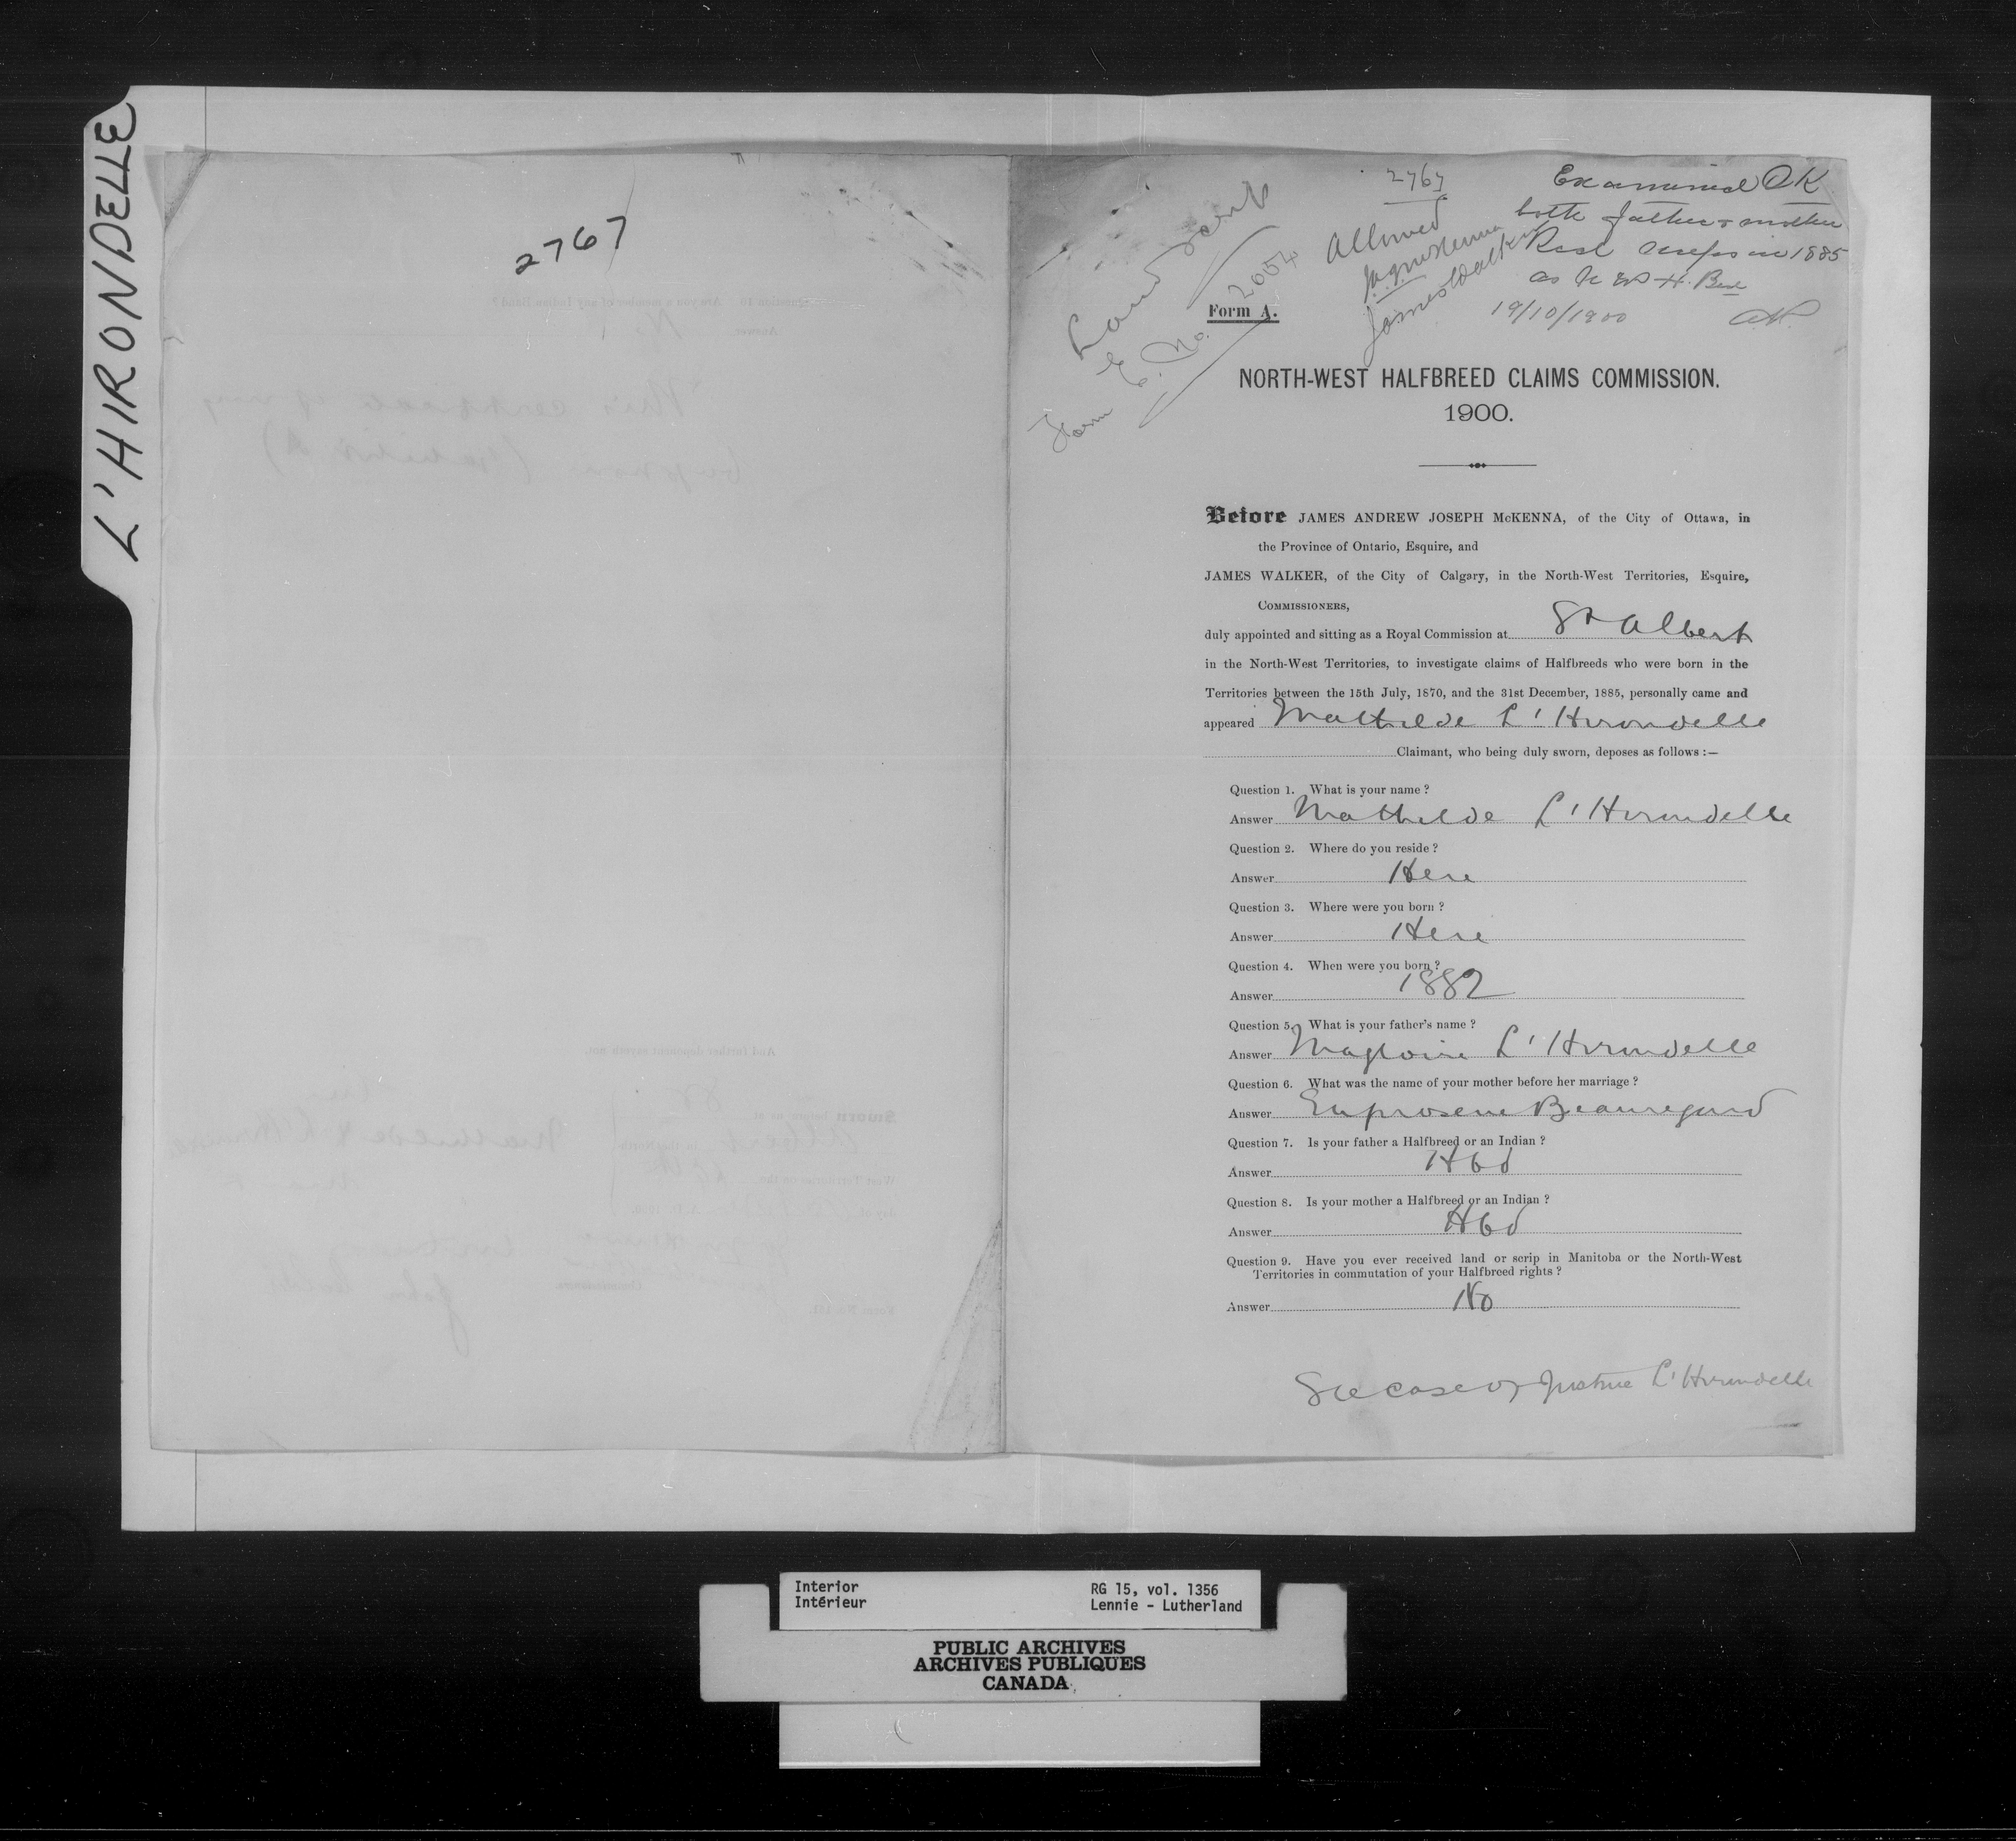 L'HIRONDELLE
2767
2767
Land Scrip
Form E. No. 2054
Allowed
J.A.J. McKenna
James Walker
Examined OK
both father & mother
Recd scrips in 1885
as N W H. Bds
19/10/1900
Form A.
NORTH-WEST HALFBREED CLAIMS COMMISSION.
1900.
Before JAMES ANDREW JOSEPH McKENNA, of the City of Ottawa, in
the Province of Ontario, Esquire, and
JAMES WALKER, of the City of Calgary, in the North-West Territories, Esquire,
COMMISSIONERS,
duly appointed and sitting as a Royal Commission at St Albert
in the North-West Territories, to investigate claims of Halfbreeds who were born in the
Territories between the 15th July, 1870, and the 31st December, 1885, personally came and
appeared Mathilde L'Hirondelle
Claimant, who being duly sworn, deposes as follows :—
Question 1. What is your name ?
Answer Mathilde L'Hirondelle
Question 2. Where do you reside ?
Answer Here
Question 3. Where were you born ?
Answer Here
Question 4. When were you born ?
Answer 1882
Question 5. What is your father's name ?
Answer Magloire L'Hirondelle
Question 6. What was the name of your mother before her marriage ?
Answer Euprosene Beauregard
Question 7. Is your father a Halfbreed or an Indian ?
Answer Hbd
Question 8. Is your mother a Halfbreed or an Indian ?
Answer Hbd
Question 9. Have you ever received land or scrip in Manitoba or the North-West
Territories in commutation of your Halfbreed rights ?
Answer No
See case of Justine L'Hirondelle
Interior
Intérieur
RG 15, vol. 1356
Lennie - Lutherland
PUBLIC ARCHIVES
ARCHIVES PUBLIQUES
CANADA